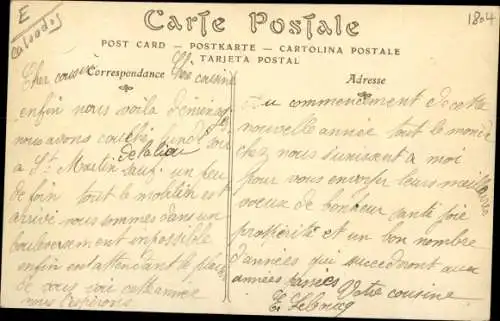 E
Calvados
1804
Carte Postale
POST CARD — POSTKARTE — CARTOLINA POSTALE
TARJETA POSTAL
Correspondance
Adresse
Cher cousin Chère cousine
enfin nous voilà déménagés
nous avons couché lundi soir
à St Martin de la lieu sauf un peu
de foin tout le mobilier est
arrivé nous sommes dans un
bouleversement impossible
enfin en attendant le plaisir
de vous voir cette année
nous espérons
Au commencement de cette
nouvelle année tout le monde
chez nous s'unissent a moi
pour vous envoyer leurs meilleurs
voeux de bonheur santé joie
prospérité et un bon nombre
d'années qui succederont aux
années passées
Votre cousine
E.